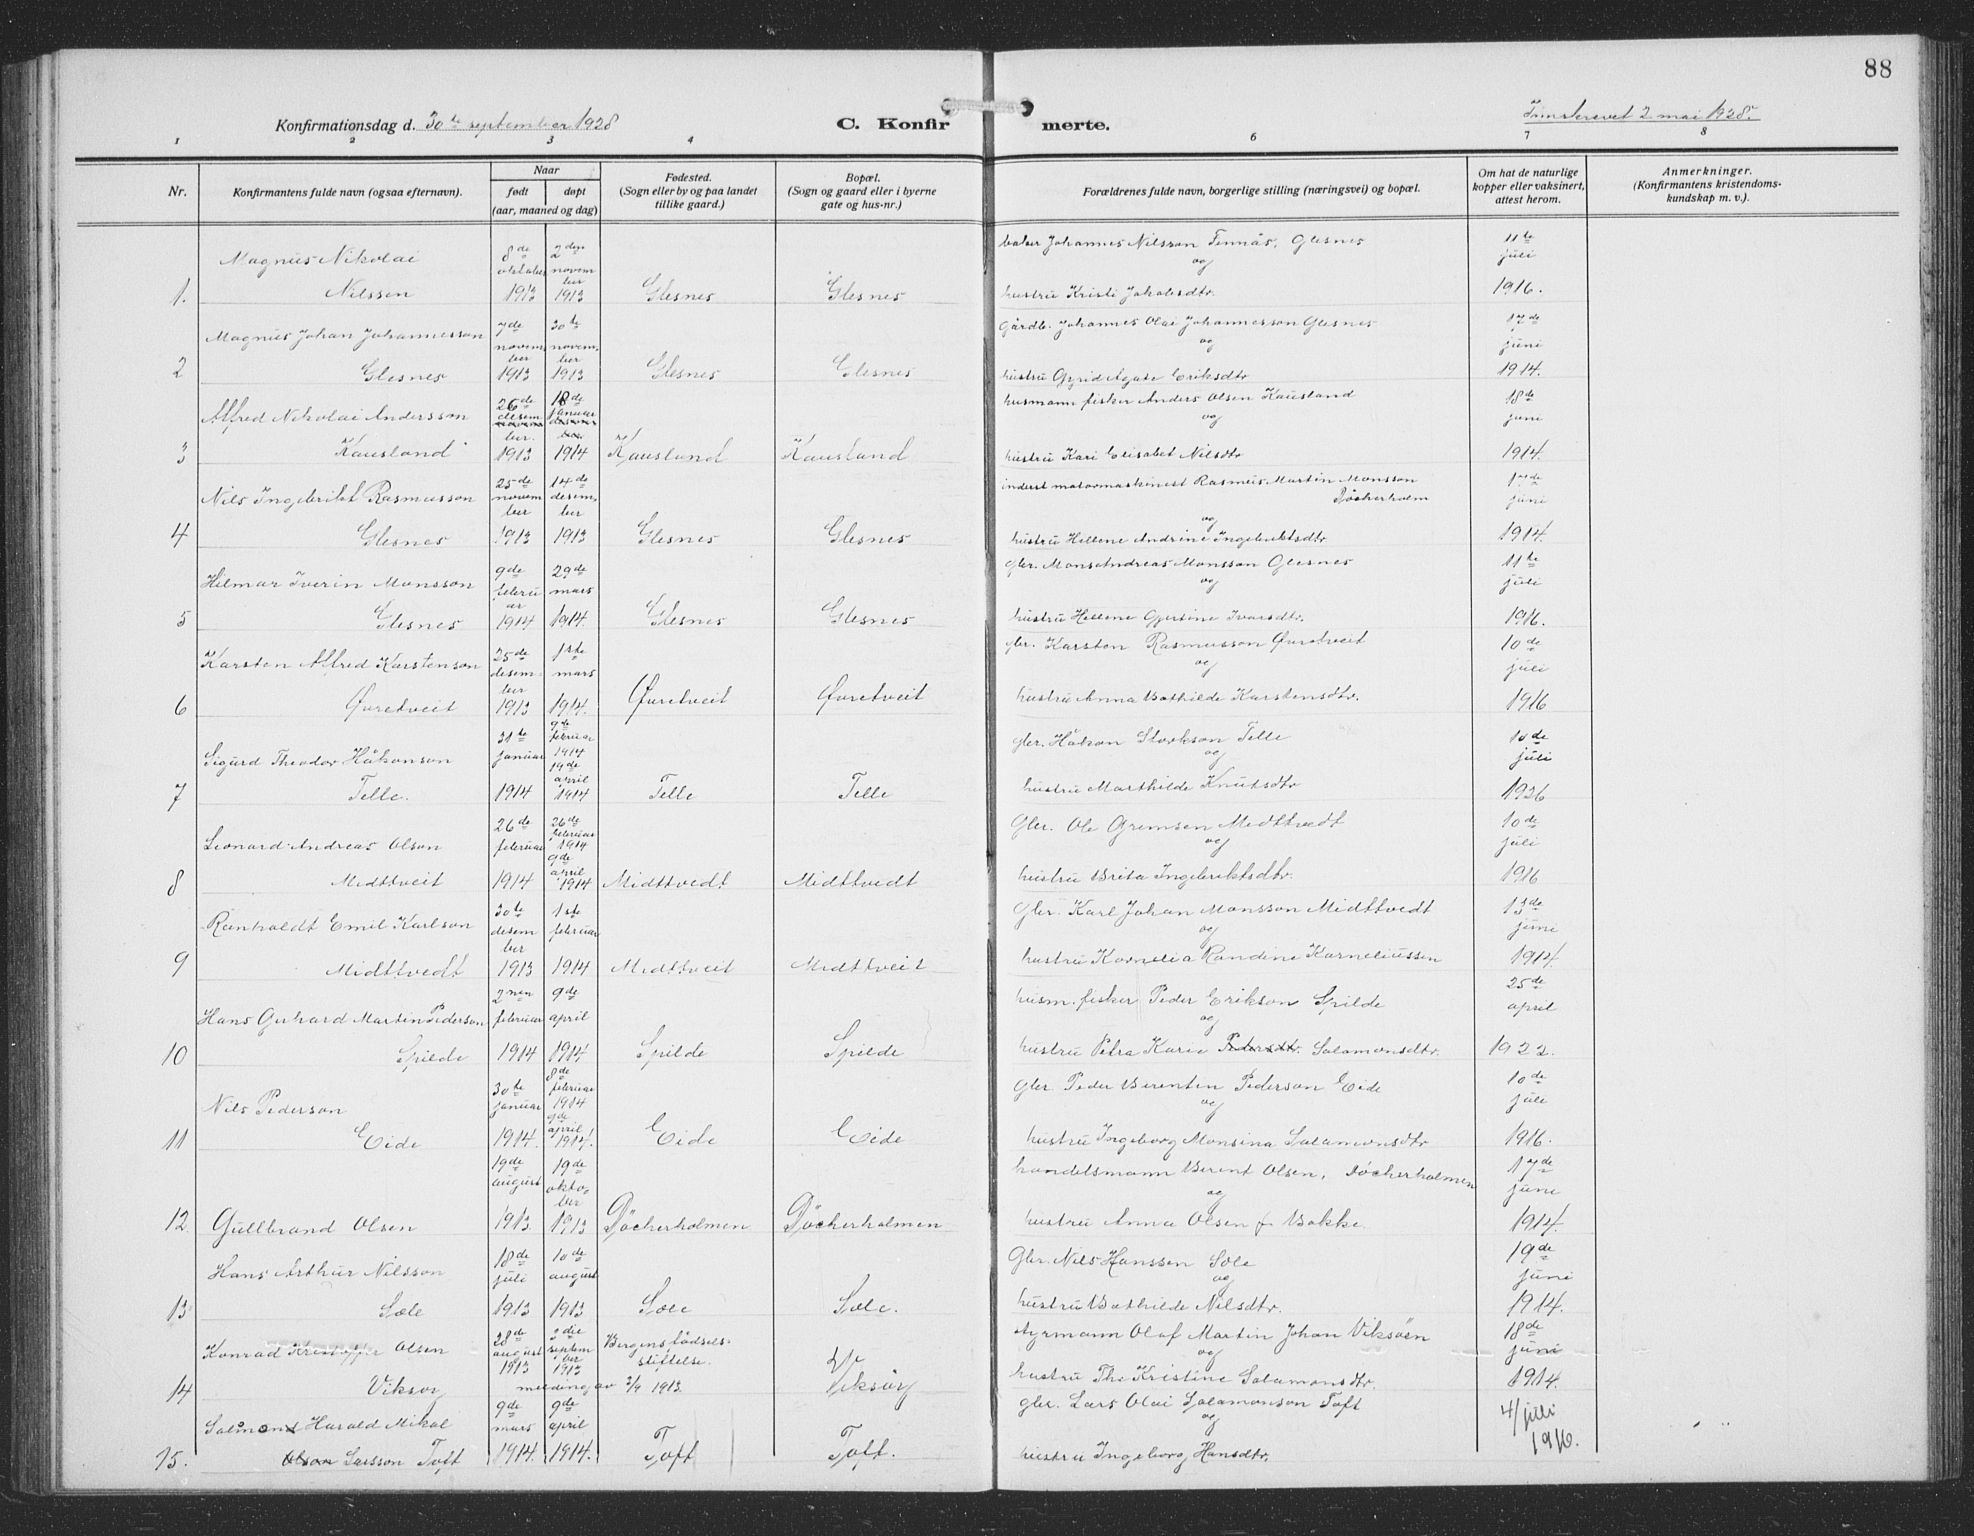 88
Konfirmationsdag d. 30te september 1928
C. Konfirmerte.
2 mai 1928.
1 2 3 4 6 7 8
Nr.
Konfirmantens fulde navn (ogsaa efternavn).
Naar
født døpt
(aar, maaned og dag)
Fødested.
(Sogn eller by og paa landet
tillike gaard.)
Bopæl.
(Sogn og gaard eller i byerne
gate og hus-nr.)
Forældrenes fulde navn, borgerlige stilling (næringsvei) og bopæl.
Om hat de naturlige
kopper eller vaksinert,
attest herom.
Anmerkninger.
(Konfirmantens kristendoms-
kundskap m. v.).
1. Magnus Nikolai
Nilssen
8de oktober 1913
2den november 1913
Glesnes
Glesnes
Johannes Nilsson Tennås, Glesnes
og
hustru Kristi Jakobsdtr.
11te juli 1916.
2 Magnus Johan Johannesson
Glesnes
7de november 1913
30te november 1913
Glesnes
Glesnes
Gårdb. Johannes Olai Johannesson Glesnes
og
hustru Gyrid Agate Eriksdtr
17de juni 1914.
3 Alfred Nikolai Andersson
Kausland
26de desember 1913
18de januar 1914
Kausland
Kausland
husmann fisker Anders Olsen Kausland
og
hustru Kari Elisabet Nilsdtr
18de juni 1914.
4 Nils Ingebrikt Rasmusson
Glesnes
25de november 1913
14de desember 1913
Glesnes
Glesnes
inderst motormaskinest Rasmus Martin Monsson
Döckerholm
og
hustru Hellene Andrine Ingebriktsdtr
17de juni 1914.
5 Hilmar Iverin Monsson
Glesnes
9de februar 1914
29de mars 1914.
Glesnes
Glesnes
gbr. Mons Andreas Monsson Glesnes
og
hustru Hellene Gjersine Ivarsdtr.
11te juli 1916.
6 Karsten Alfred Karstenson
Øvretveit
25de desember 1913
1ste mars 1914.
Øvretveit
Øvretveit
gbr. Karsten Rasmusson Øvretveit
og
hustru Anna Bothilde Karstensdtr.
10de juli 1916
7 Sigurd Theodor Håkonson
Telle.
31te januar 1914
9de februar 1914
19de april 1914
Telle
Telle
gbr. Håkon Storkson Telle
og
hustru Marthilde Knutsdtr
10de juli 1926
8 Leonard Andreas Olson
Midttveit
26de februar 1914
26de februar 1914
9de april 1914
Midttvedt
Midttvedt
Gbr. Ole Gremsen Midttvedt
og
hustru Brita Ingebriktsdtr.
10de juli 1916
9 Reinholdt Emil Karlson
Midttvedt
30te desember 1913
1ste februar 1914
Midttveit
Midttveit
Gbr. Karl Johan Monsson Midttvedt
og
hustru Kornelia Randine Korneliussen
13de juni 1914.
10 Hans Gerhard Martin Pederson
Spilde
2nen februar 1914
9de april 1914
Spilde
Spilde
husm. fisker Peder Erikson Spilde
og
hustru Petra Karie Pedersdtr. Salamonsdtr.
25de april 1922.
11 Nils Pederson
Eide
30te januar 1914.
8de februar 1914
9de april 1914.
Eide
Eide
Gbr Peder Berentin Pederson Eide
og
hustru Ingeborg Monsina Salamonsdtr
10de juli 1916.
12. Gullbrand Olsen
19de august 1913
19de oktober 1913
Döckerholmen
Döckerholmen
handelsmann Berent Olsen, Döckerholmen
og
hustru Anna Olsen f. Bakke.
17de juni 1914.
13 Hans Arthur Nilsson
Sæle
18de juli 1913
10de august 1913
Sæle
Sæle.
Gbr. Nils Hanssen Sæle
og
hustru Bothilde Nilsdtr.
19de juni 1914.
14 Konrad Kristoffer Olsen
Viksøy
28de august 1913
3die september 1913
melding av 3/9 1913.
Bergens fødsels-
stiftelse.
Viksøy
styrmann Olaf Martin Johan Viksöen
og
hustru Thea Kristine Salamonsdtr.
18de juni 1914.
15. Salmond Harald Mikal
Olson Larsson Toft
9de mars 1914.
9de april 1914.
Toft
Toft.
gbr. Lars Olai Salamonson Toft
og
hustru Ingeborg Hansdtr.
4/juli 1916.